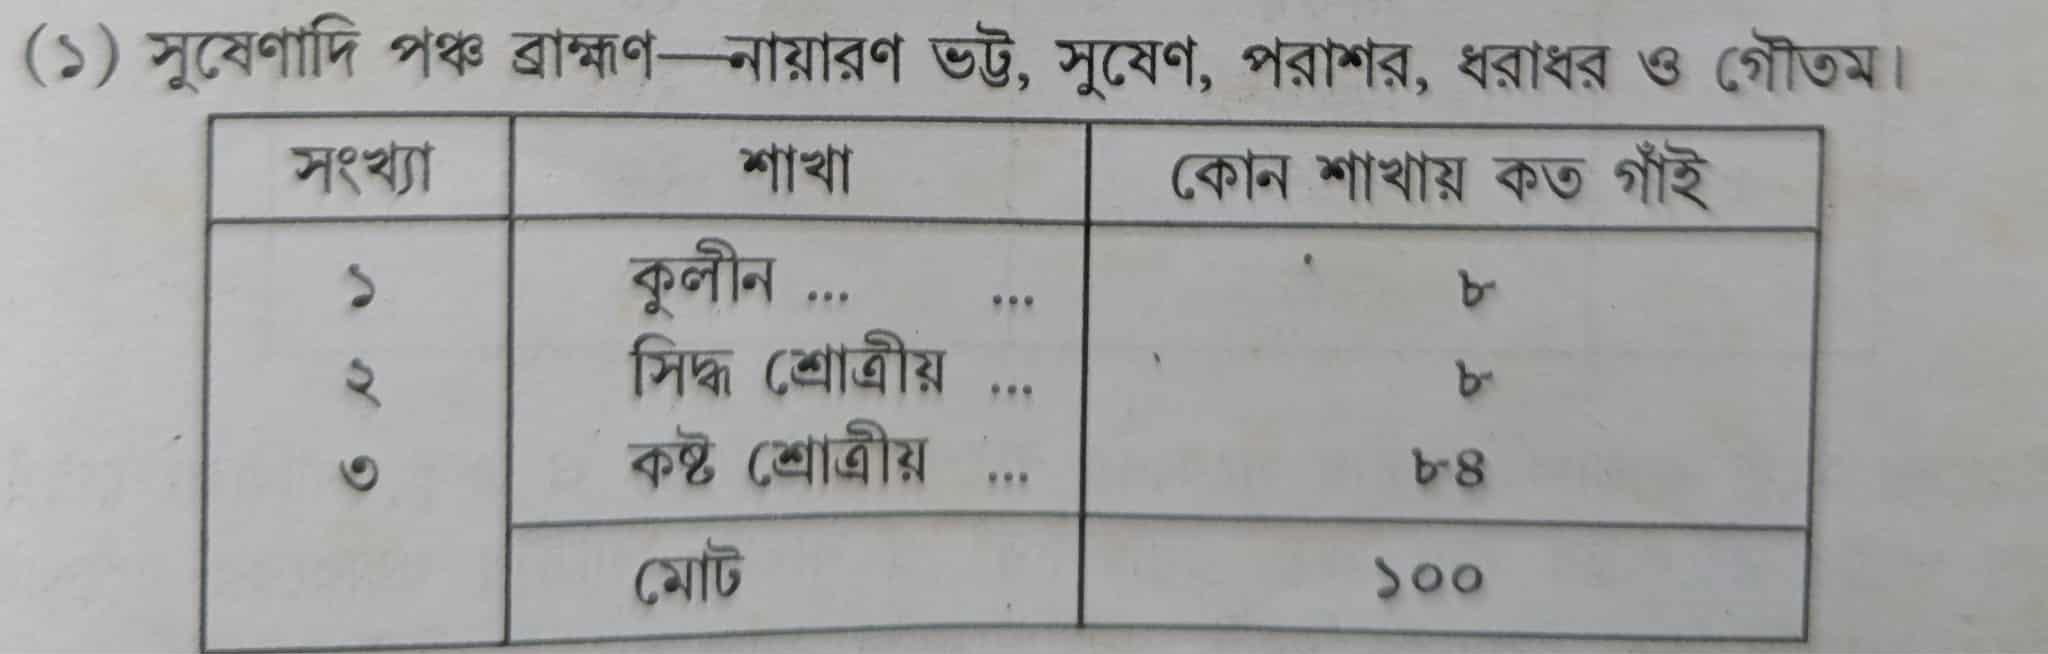 (১) সূষেণাদি পঞ্চ ব্রাহ্মণ—নায়ারণ ভট্ট, সূষেণ, পরাশর, ধরাধর ও গৌতম।
সংখ্যা শাখা কোন শাখায় কত গাঁই
১ কূলীন ... ... ৮
২ সিদ্ধ শ্রোত্রীয় ... ৮
৩ কষ্ট শ্রোত্রীয় ... ৮৪
মোট ১০০